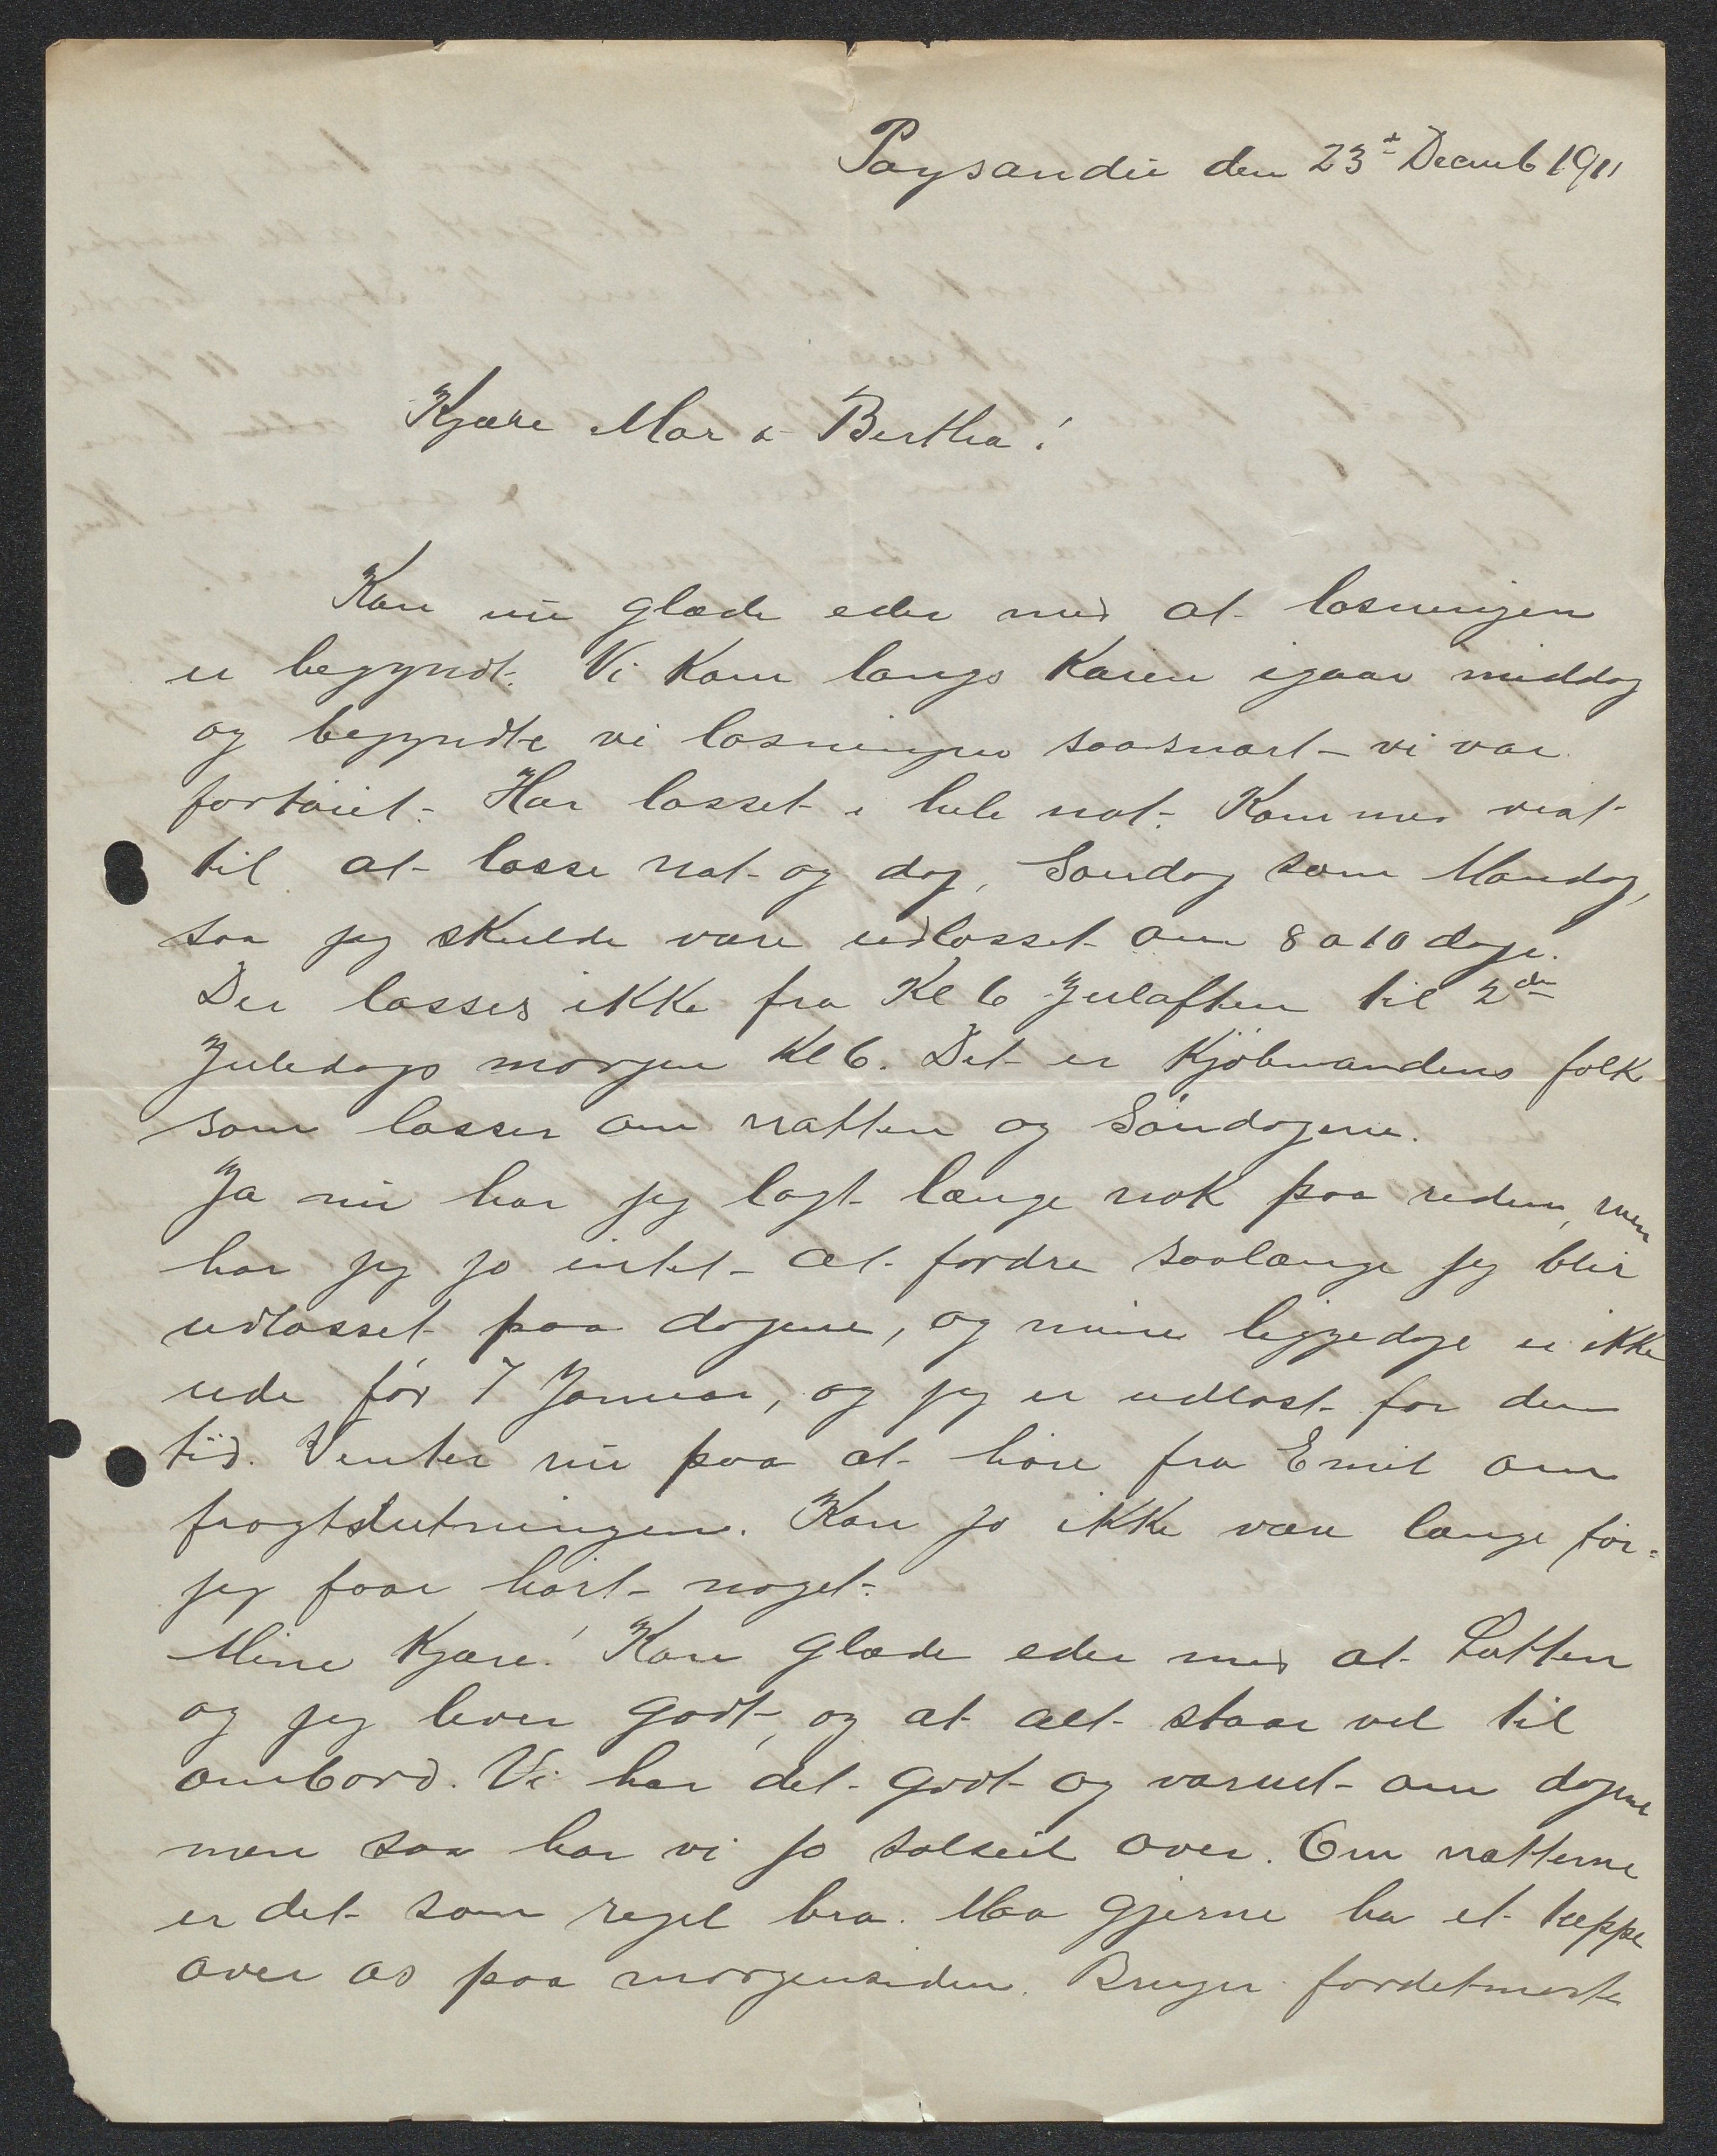 Paysandu den 23de Decemb 1911
Kjære Mor & Bertha!
Kan nu glæde eder med at losningen
er begyndt. Vi kom langs Kaien igaar middag
og begyndte vi losningen saasnart vi var
fortøiet. Har losset i hele nat. Kommer visst
til at losse nat og dag, Søndag som Mandag,
saa jeg skulde være udlosset om 8 a 10 dage.
Der losses ikke fra Kl 6 Julaften til 2den
Juledags morgen Kl 6. Det er Kjøbmandens folk
som losser om natten og Søndagene.
Ja nu har jeg lagt længe nok paa reden, men
har jeg jo intet at fordre saalænge jeg blir
udlosset paa dagene, og mine liggedage er ikke
ude før 7 Januar, og jeg er udlost før den
tid. Venter nu paa at høre fra Emil om
fragtslutningen. Kan jo ikke være længe før
jeg faar hørt noget.
Mine Kjære! Kan glæde eder med at Lutten
og jeg lever godt, og at alt staar vel til
ombord. Vi har det godt og varmt om dagene
men saa har vi jo solseil over. Om nætterne
er det som regel bra. Maa gjerne ha et teppe
over os paa morgensiden. Bruger fordetmeste